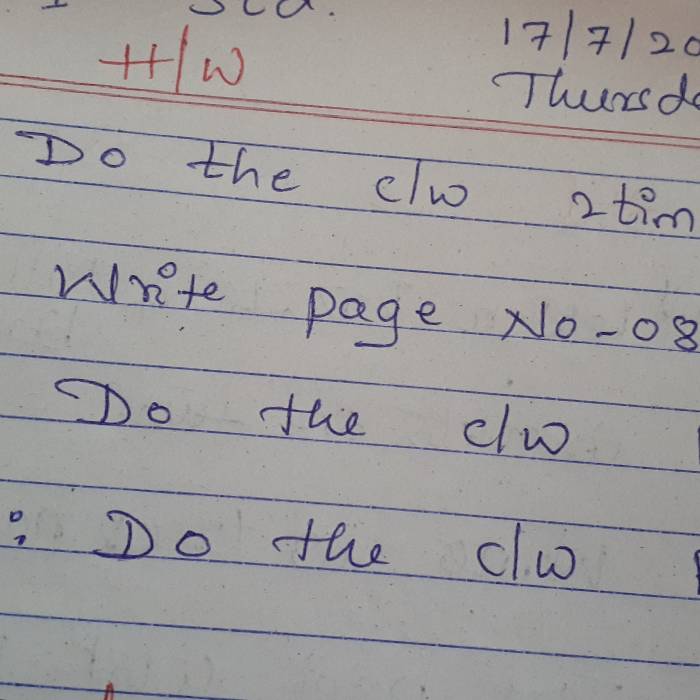 I Std.
17/7/20
H/W
Thursda
Do the c/w 2 tim
Write page No-08
Do the c/w
: Do the c/w